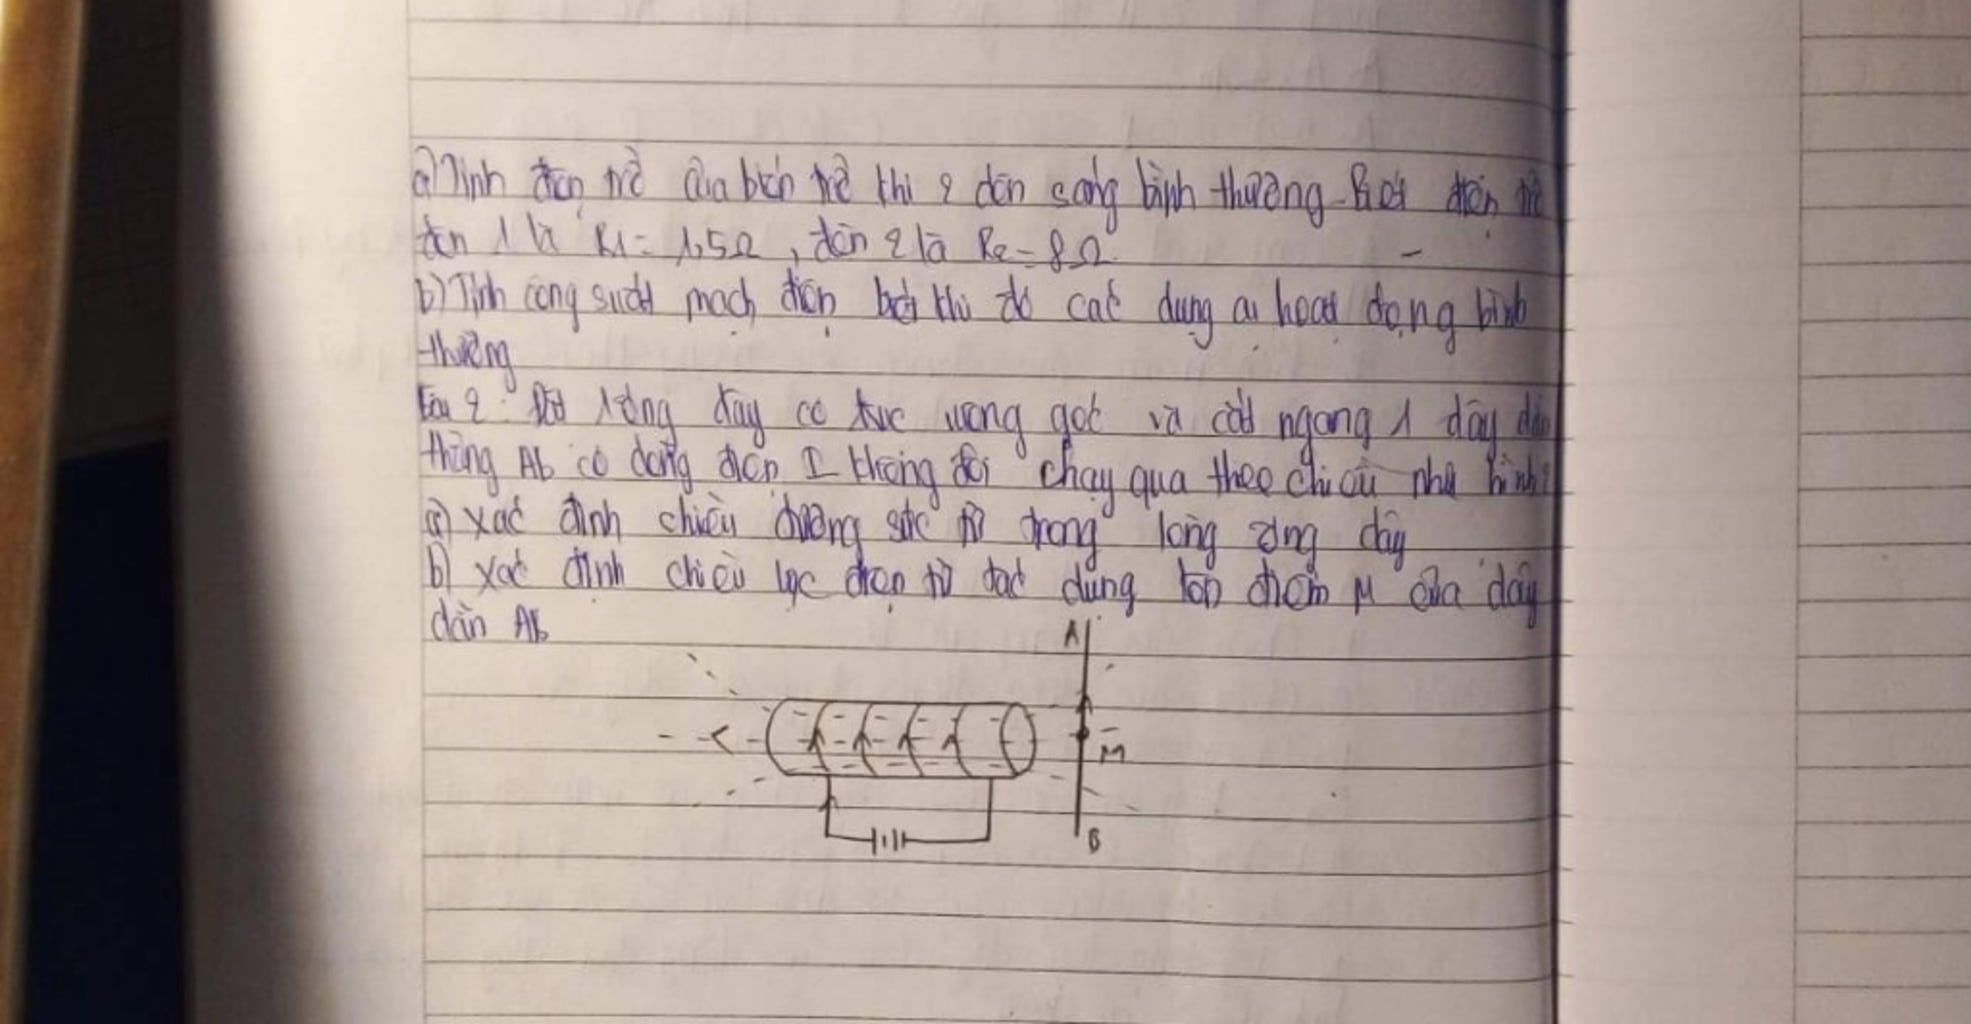 a) Tính điện trở của biến trở khi 2 đèn sáng bình thường. Biết điện trở
đèn 1 là R1 = 1,5Ω, đèn 2 là R2 = 8Ω.
b) Tính công suất mạch điện biết khi đó các dụng cụ hoạt động bình
thường
Câu 2: Đặt 1 ống dây có trục vuông góc và cắt ngang 1 dây dẫn
thẳng Ab có dòng điện I không đổi chạy qua theo chiều như hình
a) Xác định chiều đường sức từ trong lòng ống dây
b) Xác định chiều lực điện từ tác dụng lên điểm M của dây
dẫn Ab
A
M
B